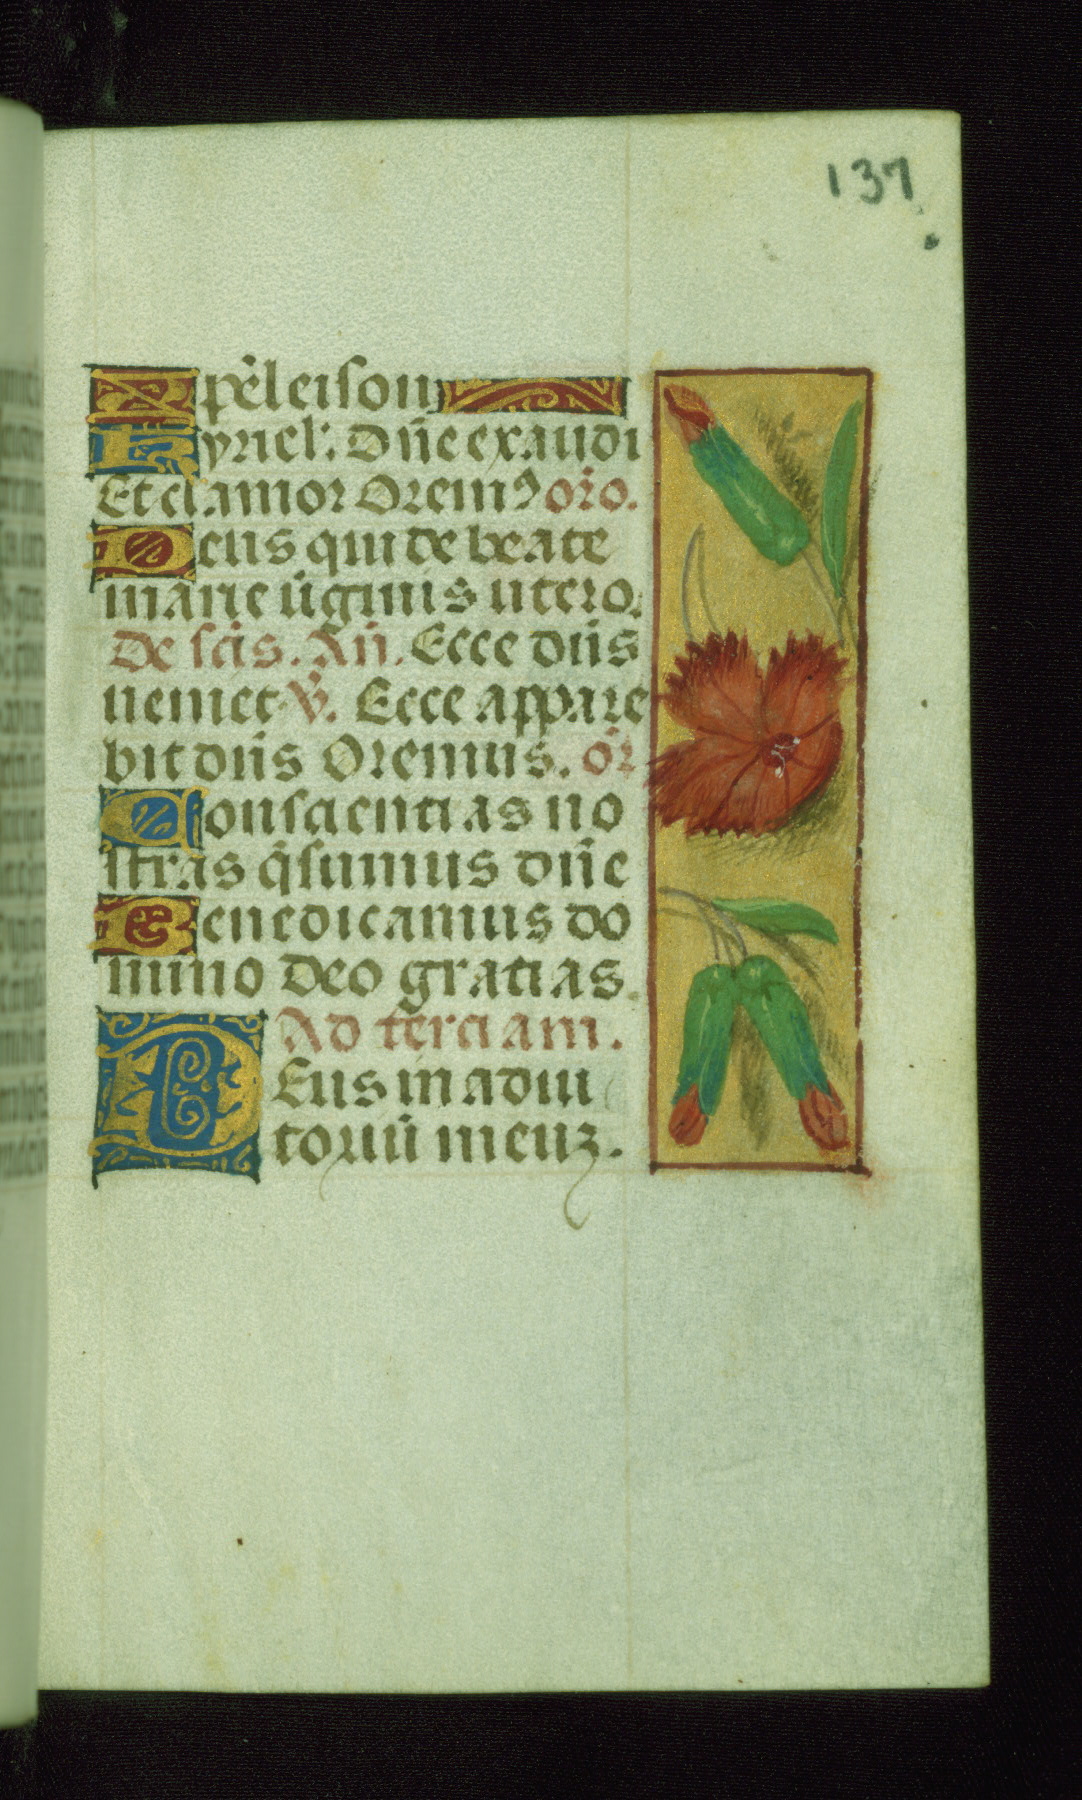 137
Xp̄eleison
Kyriel'. Dn̄e exaudi
Et clamor Oremꝰ oro.
Deus qui de beate
marie ūginis utero.
De scīs. An̄. Ecce dn̄s
ueniet V̄. Ecce appare
bit dn̄s Oremus. Or̄
Consaenti as no
stras q̄sumus dn̄e
Benedicamus do
mino Deo grati as.
Ad terci am.
DEus in adiu
toriū meuʒ.